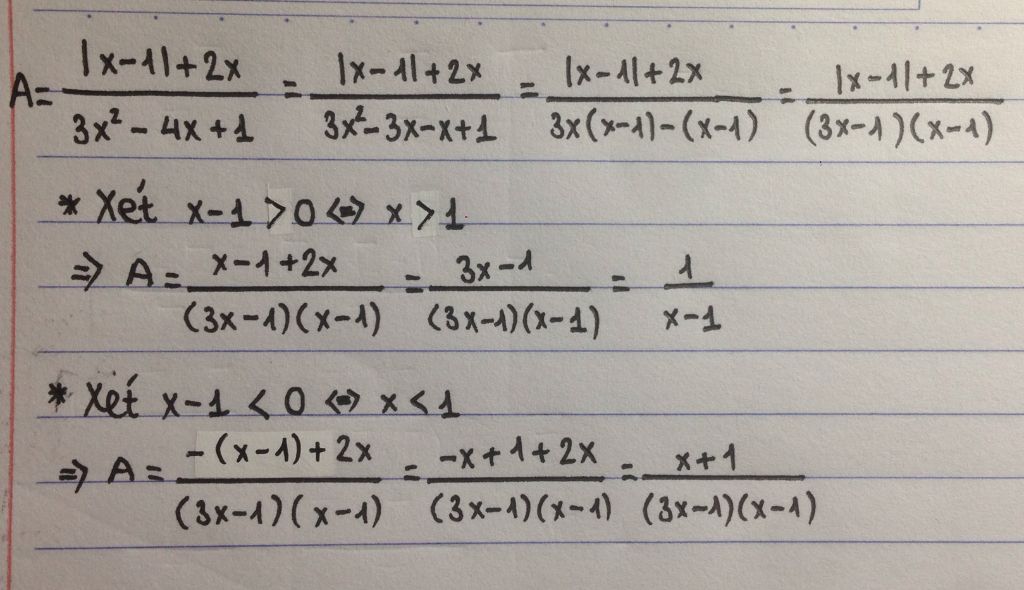 A = |x-1|+2x / 3x² - 4x + 1 = |x-1|+2x / 3x²-3x-x+1 = |x-1|+2x / 3x(x-1)-(x-1) = |x-1|+2x / (3x-1)(x-1)
* Xét x-1 > 0 <=> x > 1
=> A = x-1+2x / (3x-1)(x-1) = 3x-1 / (3x-1)(x-1) = 1 / x-1
* Xét x-1 < 0 <=> x < 1
=> A = -(x-1)+2x / (3x-1)(x-1) = -x+1+2x / (3x-1)(x-1) = x+1 / (3x-1)(x-1)